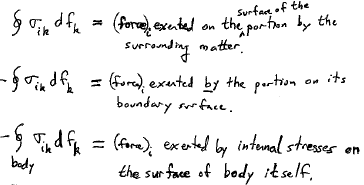 ∮ σ_ik df_k = (force)_i exerted on the surface of the portion by the
surrounding matter.
- ∮ σ_ik df_k = (force)_i exerted by the portion on its
boundary surface.
- ∮_body σ_ik df_k = (force)_i exerted by internal stresses on
the surface of body itself.